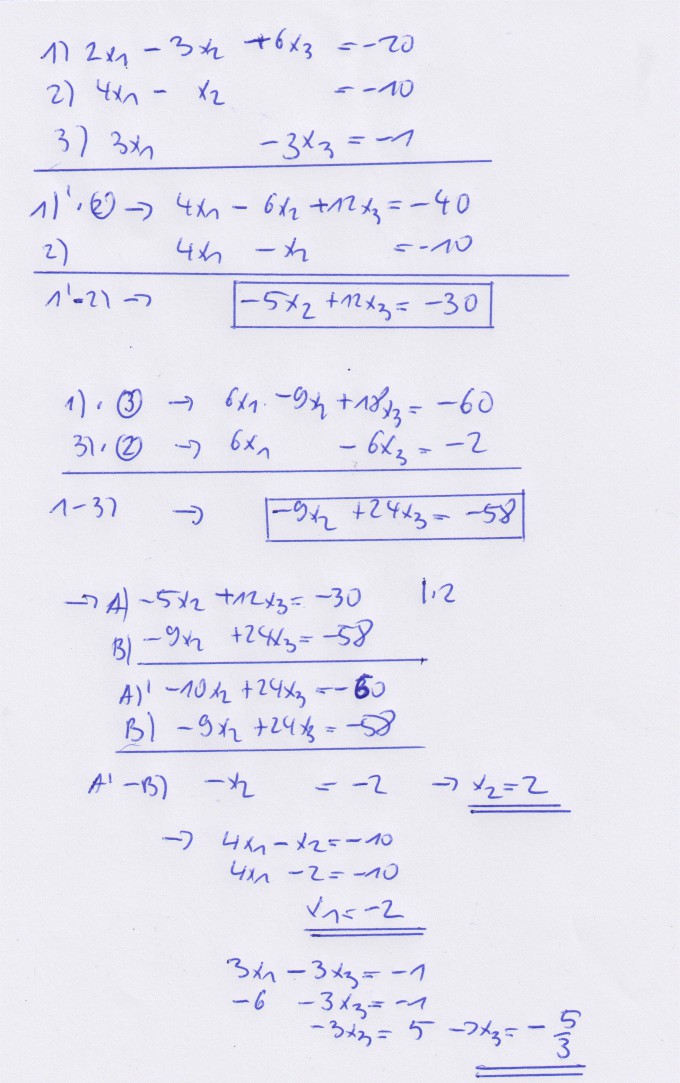 1) 2x₁ - 3x₂ +6x₃ = -20
2) 4x₁ - x₂ = -10
3) 3x₁ - 3x₃ = -1
1)' · ② → 4x₁ - 6x₂ + 12x₃ = -40
2) 4x₁ - x₂ = -10
1'-2) → -5x₂ + 12x₃ = -30
1) · ③ → 6x₁ - 9x₂ + 18x₃ = -60
3) · ② → 6x₁ - 6x₃ = -2
1-3) → -9x₂ + 24x₃ = -58
→ A) -5x₂ + 12x₃ = -30 |·2
B) -9x₂ + 24x₃ = -58
A)' -10x₂ + 24x₃ = -60
B) -9x₂ + 24x₃ = -58
A' -B) -x₂ = -2 → x₂ = 2
→ 4x₁ - x₂ = -10
4x₁ - 2 = -10
x₁ = -2
3x₁ - 3x₃ = -1
-6 - 3x₃ = -1
-3x₃ = 5 → x₃ = - 5/3